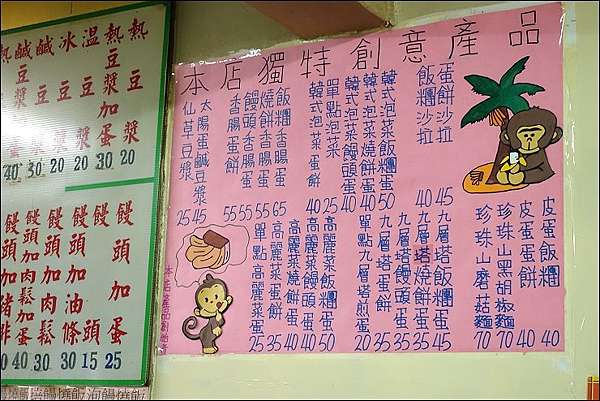 本店獨特創意產品
蛋餅沙拉 45
飯糰沙拉 40
韓式泡菜飯糰蛋 50
韓式泡菜燒餅蛋 40
韓式泡菜饅頭蛋 40
單點泡菜 25
韓式泡菜蛋餅 40
飯糰香腸蛋 65
燒餅香腸蛋 55
饅頭香腸蛋 55
香腸蛋餅 55
太陽蛋鹹豆漿 45
仙草豆漿 25
皮蛋飯糰 40
皮蛋蛋餅 40
珍珠山黑胡椒麵 70
珍珠山磨菇麵 70
九層塔飯糰蛋 45
九層塔燒餅蛋 35
九層塔饅頭蛋 35
九層塔蛋餅 35
單點九層塔煎蛋 20
高麗菜飯糰蛋 50
高麗菜饅頭蛋 40
高麗菜燒餅蛋 40
高麗菜蛋餅 35
單點高麗菜蛋 25
熱豆漿 20
熱豆漿加蛋 30
溫豆漿 20
冰豆漿 20
鹹豆漿 30
鹹豆漿 40
饅頭加蛋 25
饅頭 15
饅頭加油條 30
饅頭加肉鬆 30
饅頭加肉鬆加蛋 40